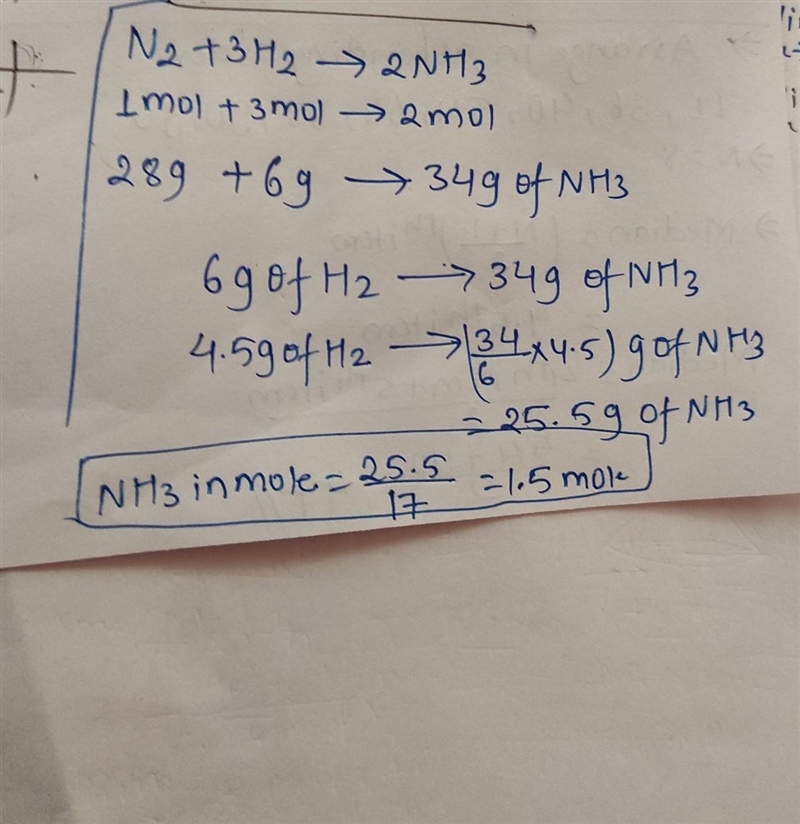 N2 + 3H2 → 2NH3
1mol + 3mol → 2mol
28g + 6g → 34g of NH3
6g of H2 → 34g of NH3
4.5g of H2 → (34/6 x 4.5) g of NH3
= 25.5g of NH3
NH3 in mole = 25.5/17 = 1.5 mole